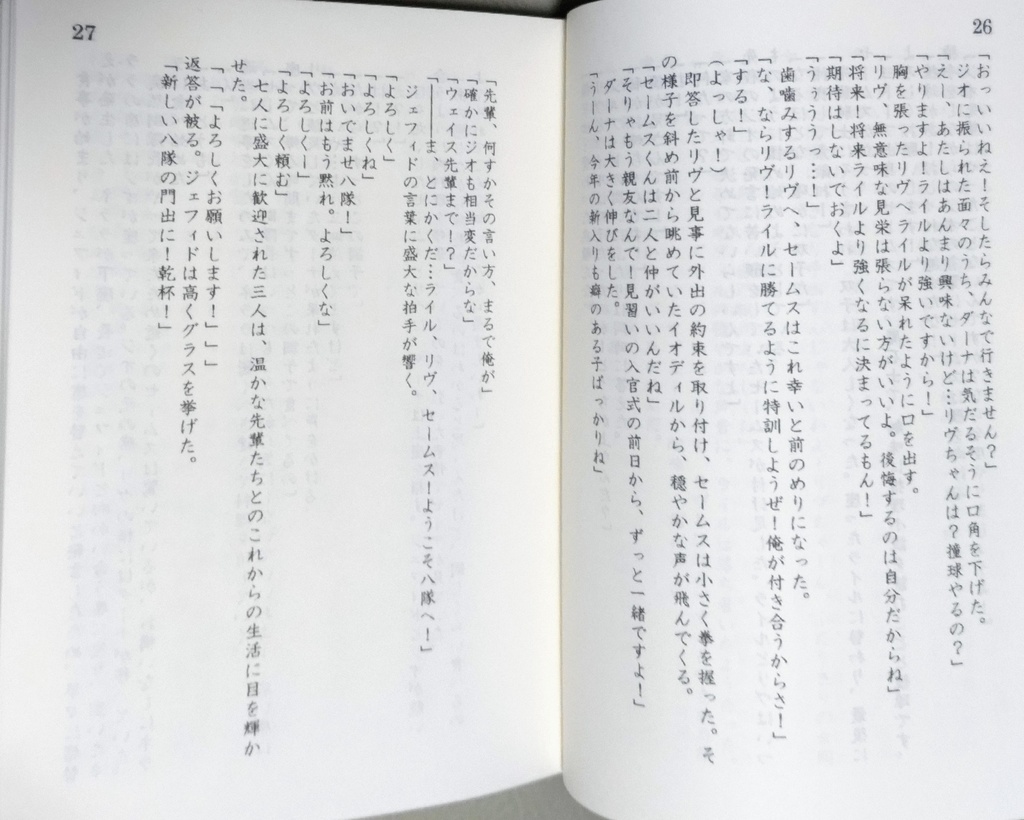 26
「おっいいねえ！そしたらみんなで行きません？」
ジオに振られた面々のうち、ダーナは気だるそうに口角を下げた。
「えー、あたしはあんまり興味ないけど…リヴちゃんは？撞球やるの？」
「やりますよ！ライルより強いですから！」
胸を張ったリヴへライルが呆れたように口を出す。
「リヴ、無意味な見栄は張らない方がいいよ。後悔するのは自分だからね」
「将来！将来ライルより強くなるに決まってるもん！」
「期待はしないでおくよ」
「ううううっ…！」
歯噛みするリヴへ、セームスはこれ幸いと前のめりになった。
「な、ならリヴ！ライルに勝てるように特訓しようぜ！俺が付き合うからさ！」
「する！」
（よっしゃ！）
即答したリヴと見事に外出の約束を取り付け、セームスは小さく拳を握った。そ
の様子を斜め前から眺めていたイオディルから、穏やかな声が飛んでくる。
「セームスくんは二人と仲がいいんだね」
「そりゃもう親友なんで！見習いの入官式の前日から、ずっと一緒ですよ！」
ダーナは大きく伸びをした。
「うーん、今年の新入りも癖のある子ばっかりね」
27
「先輩、何すかその言い方、まるで俺が」
「確かにジオも相当変だからな」
「ウェイス先輩まで！？」
「――ま、とにかくだ…ライル、リヴ、セームス！ようこそ八隊へ！」
ジェフィドの言葉に盛大な拍手が響く。
「よろしく」
「よろしくね」
「おいでませ八隊！」
「お前はもう黙れ。よろしくな」
「よろしくー」
「よろしく、頼む」
七人に盛大に歓迎された三人は、温かな先輩たちとのこれからの生活に目を輝か
せた。
「「「よろしくお願いします！」」」
返答が被る。ジェフィドは高くグラスを挙げた。
「新しい八隊の門出に！乾杯！」